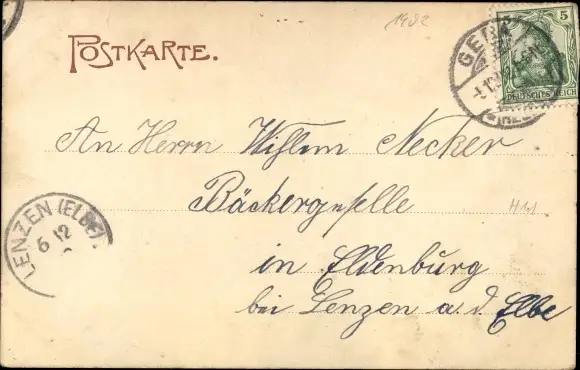 1902
POSTKARTE.
GERA
5
DEUTSCHES REICH
An Herrn Wilhlem Necker
Bäckergeselle
in Eldenburg
bei Lenzen a. d. Elbe
LENZEN (ELBE)
6 12